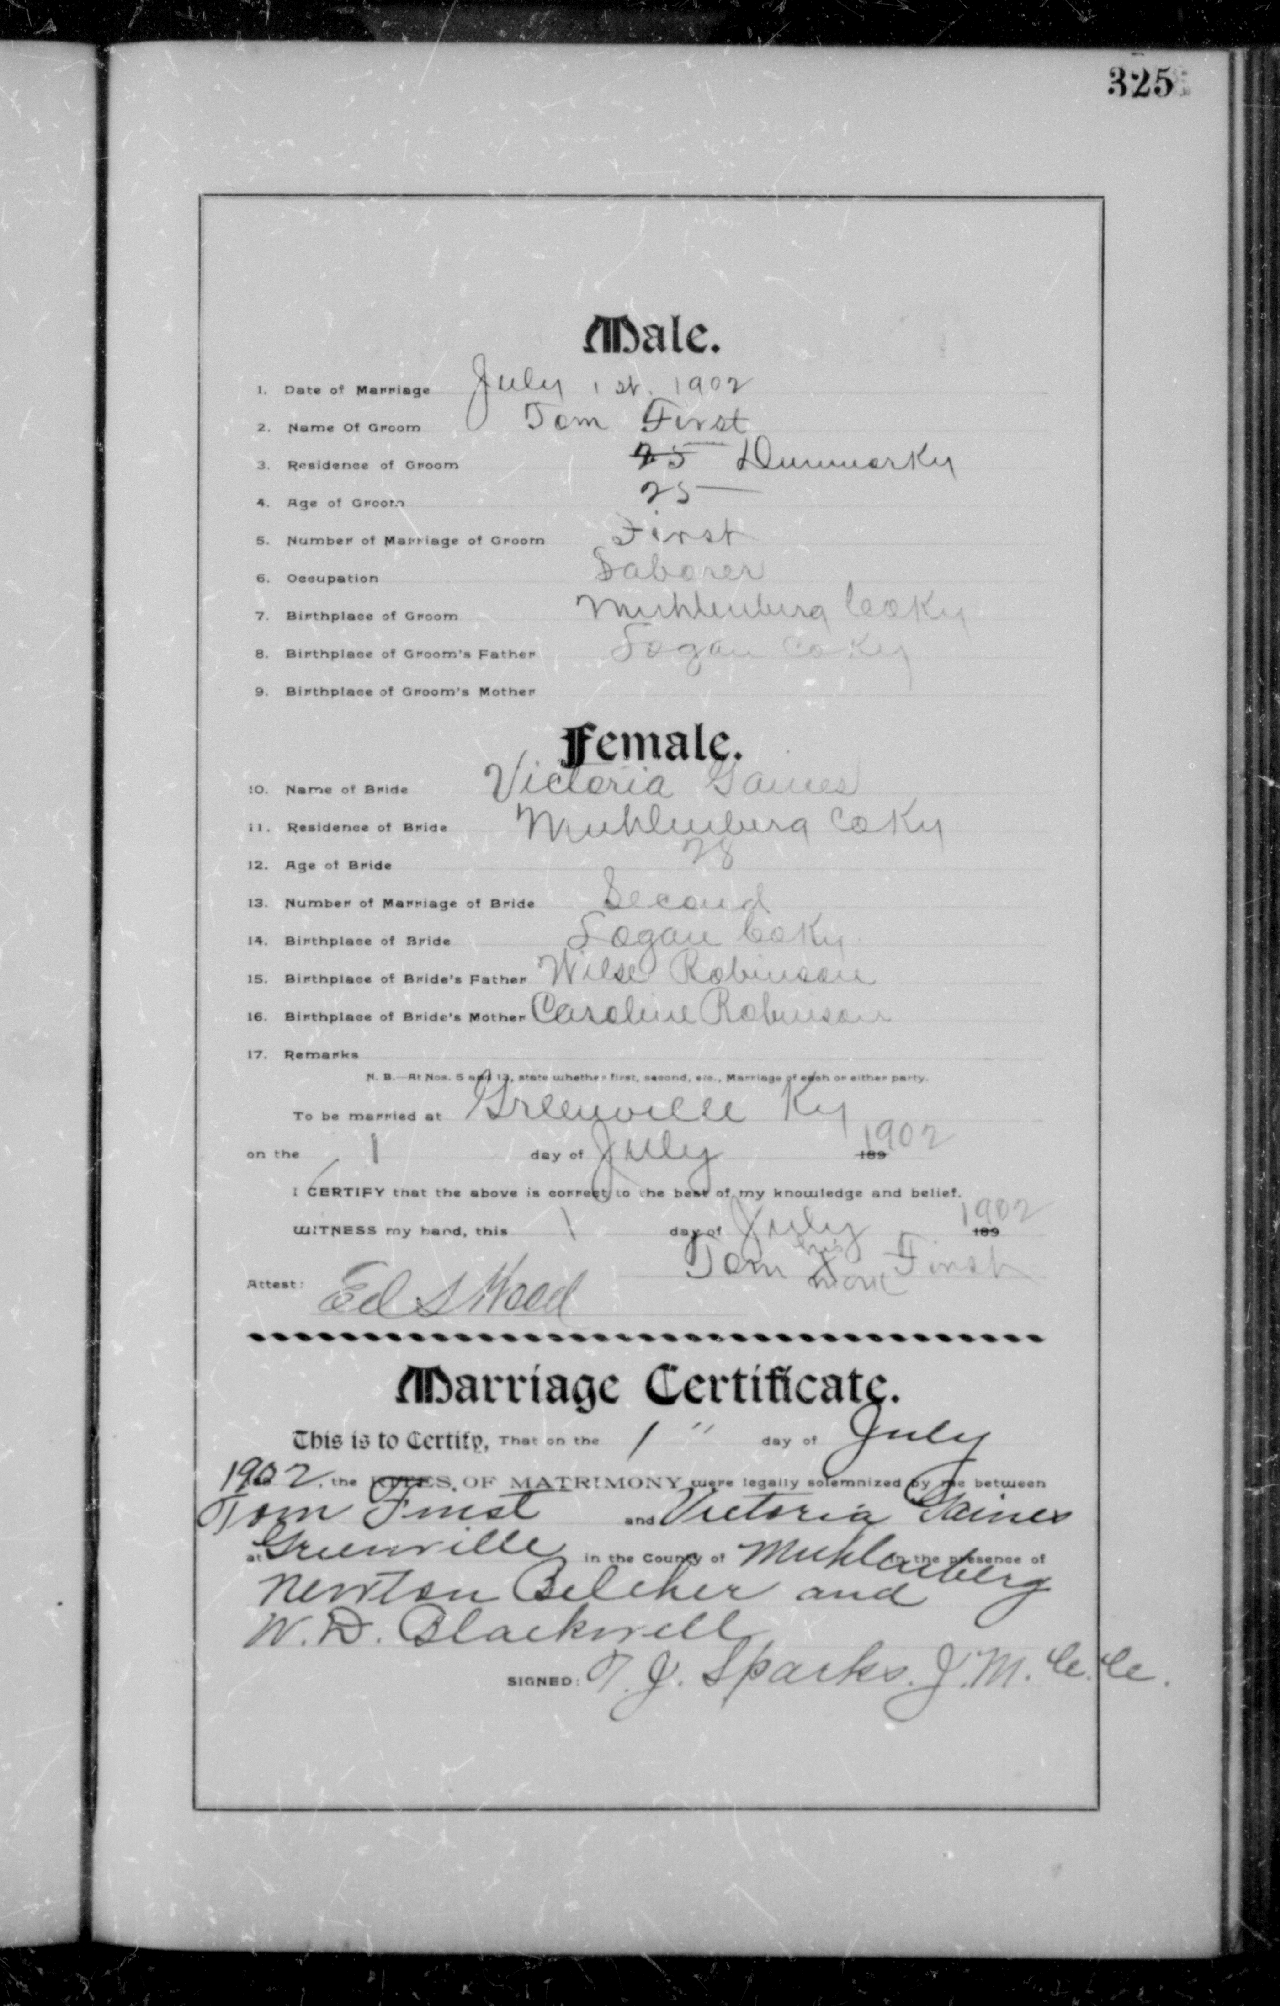 325
Male.
1. Date of Marriage July 1st. 1902
2. Name Of Groom Tom First
3. Residence of Groom 25 Dunmor Ky
4. Age of Groom 25
5. Number of Marriage of Groom First
6. Occupation Laborer
7. Birthplace of Groom Muhlenburg Co Ky
8. Birthplace of Groom's Father Logan Co Ky
9. Birthplace of Groom's Mother
Female.
10. Name of Bride Victoria Gaines
11. Residence of Bride Muhlenburg Co Ky
12. Age of Bride 28
13. Number of Marriage of Bride Second
14. Birthplace of Bride Logan Co Ky
15. Birthplace of Bride's Father Wilse Robinson
16. Birthplace of Bride's Mother Caroline Robinson
17. Remarks
N. B.—At Nos. 5 and 13, state whether first, second, etc., Marriage of each or either party.
To be married at Greenville Ky
on the 1 day of July 189 1902
I CERTIFY that the above is correct to the best of my knowledge and belief.
WITNESS my hand, this 1 day of July 189 1902
Tom his X mark First
Attest: Ed S Wood
Marriage Certificate.
This is to Certify, That on the 1" day of July
1902, the RITES OF MATRIMONY were legally solemnized by me between
Tom First and Victoria Gaines
at Greenville in the County of Muhlenberg in the presence of
Newton Belcher and
W. D. Blackwell
SIGNED: T. J. Sparks. J. M. C. C.